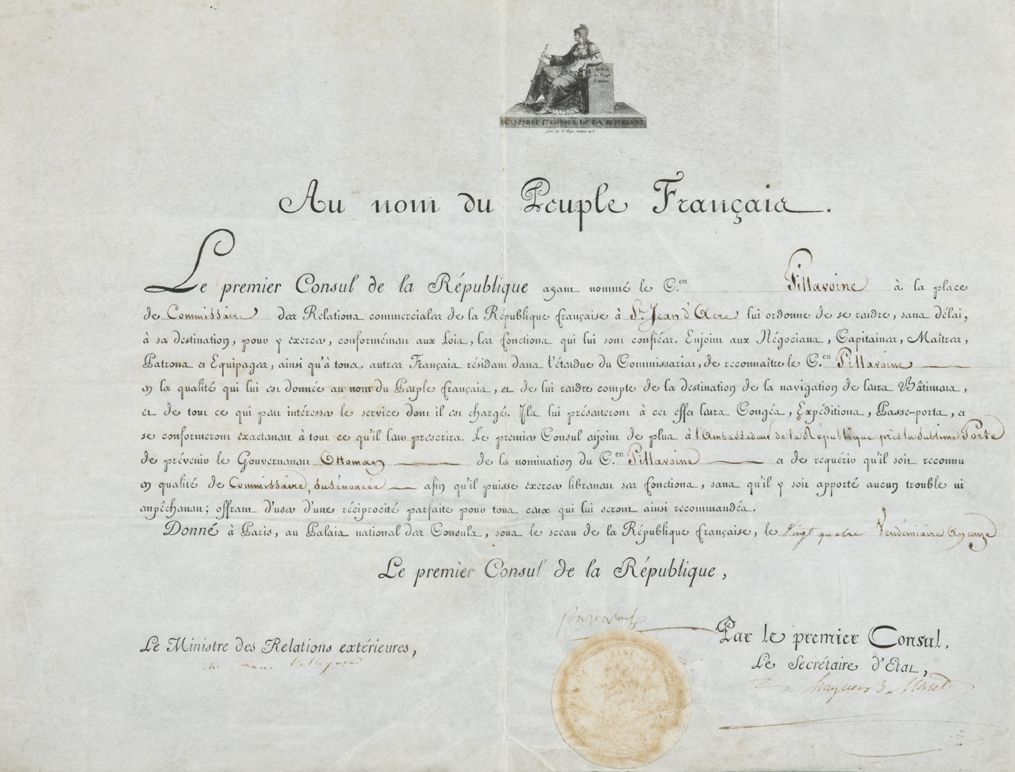 BONAPARTE 1er CONSUL DE LA REPUBLIQUE
Au nom du Peuple Français.
Le premier Consul de la République ayant nommé le C.en Pillavoine à la place
de Commissaire des Relations commerciales de la République française à St Jean d'Acre lui ordonne de se rendre, sans délai,
à sa destination, pour y exercer, conformément aux Loix, les fonctions qui lui sont confiées. Enjoint aux Négocians, Capitaines, Maîtres,
Patrons et Equipages, ainsi qu'à tous autres Français résidant dans l'étendue du Commissariat, de reconnaître le C.en Pillavoine
en la qualité qui lui est donnée au nom du Peuple français, et de lui rendre compte de la destination de la navigation de leurs Bâtimens,
et de tout ce qui peut intéresser le service dont il est chargé. Ils lui présenteront à cet effet leurs Congés, Expéditions, Passe-ports, et
se conformeront exactement à tout ce qu'il leur prescrira. Le premier Consul enjoint de plus à l'Ambassadeur de la République près la Sublime Porte
de prévenir le Gouvernement Ottoman de la nomination du C.en Pillavoine et de requérir qu'il soit reconnu
en qualité de Commissaire, susénoncée afin qu'il puisse exercer librement ses fonctions, sans qu'il y soit apporté aucun trouble ni
empêchement; offrant d'user d'une réciprocité parfaite pour tous ceux qui lui seront ainsi recommandés.
Donné à Paris, au Palais national des Consuls, sous le sceau de la République française, le Vingt quatre Vendemiaire an onze
Le premier Consul de la République,
Bonaparte
Par le premier Consul,
Le Ministre des Relations extérieures,
Le Secrétaire d'Etat,
ch. mau. Talleyrand
Hugues B. Maret